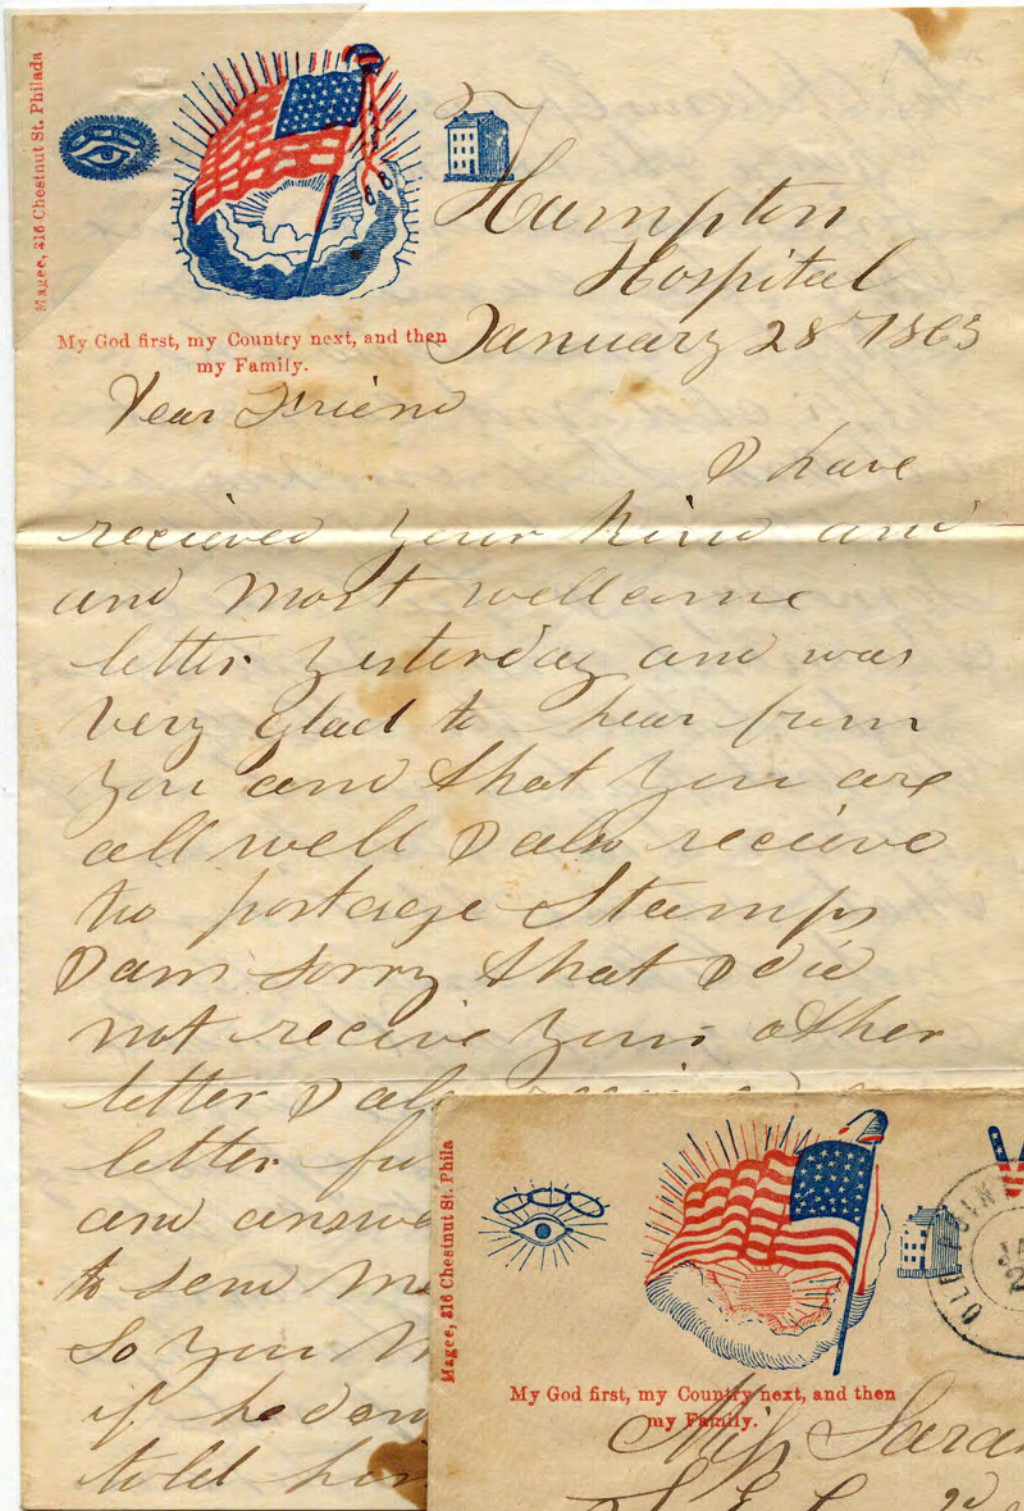 Magee, 316 Chestnut St. Philada
My God first, my Country next, and then
my Family.
Hampton
Hospital
January 28th 1863
Dear Friend
I have
recieved your kind and
and most wellcome
letter yesterday and was
very glad to hear from
you and that you are
all well I also recieve
two postage Stamps
I am sorry that I did
not receive your other
letter I also
letter
and answe
to send me
so you
if he don
told him
Magee, 316 Chestnut St. Phila
OLD POINT
JA
2
My God first, my Country next, and then
my Family.
Miss Sara